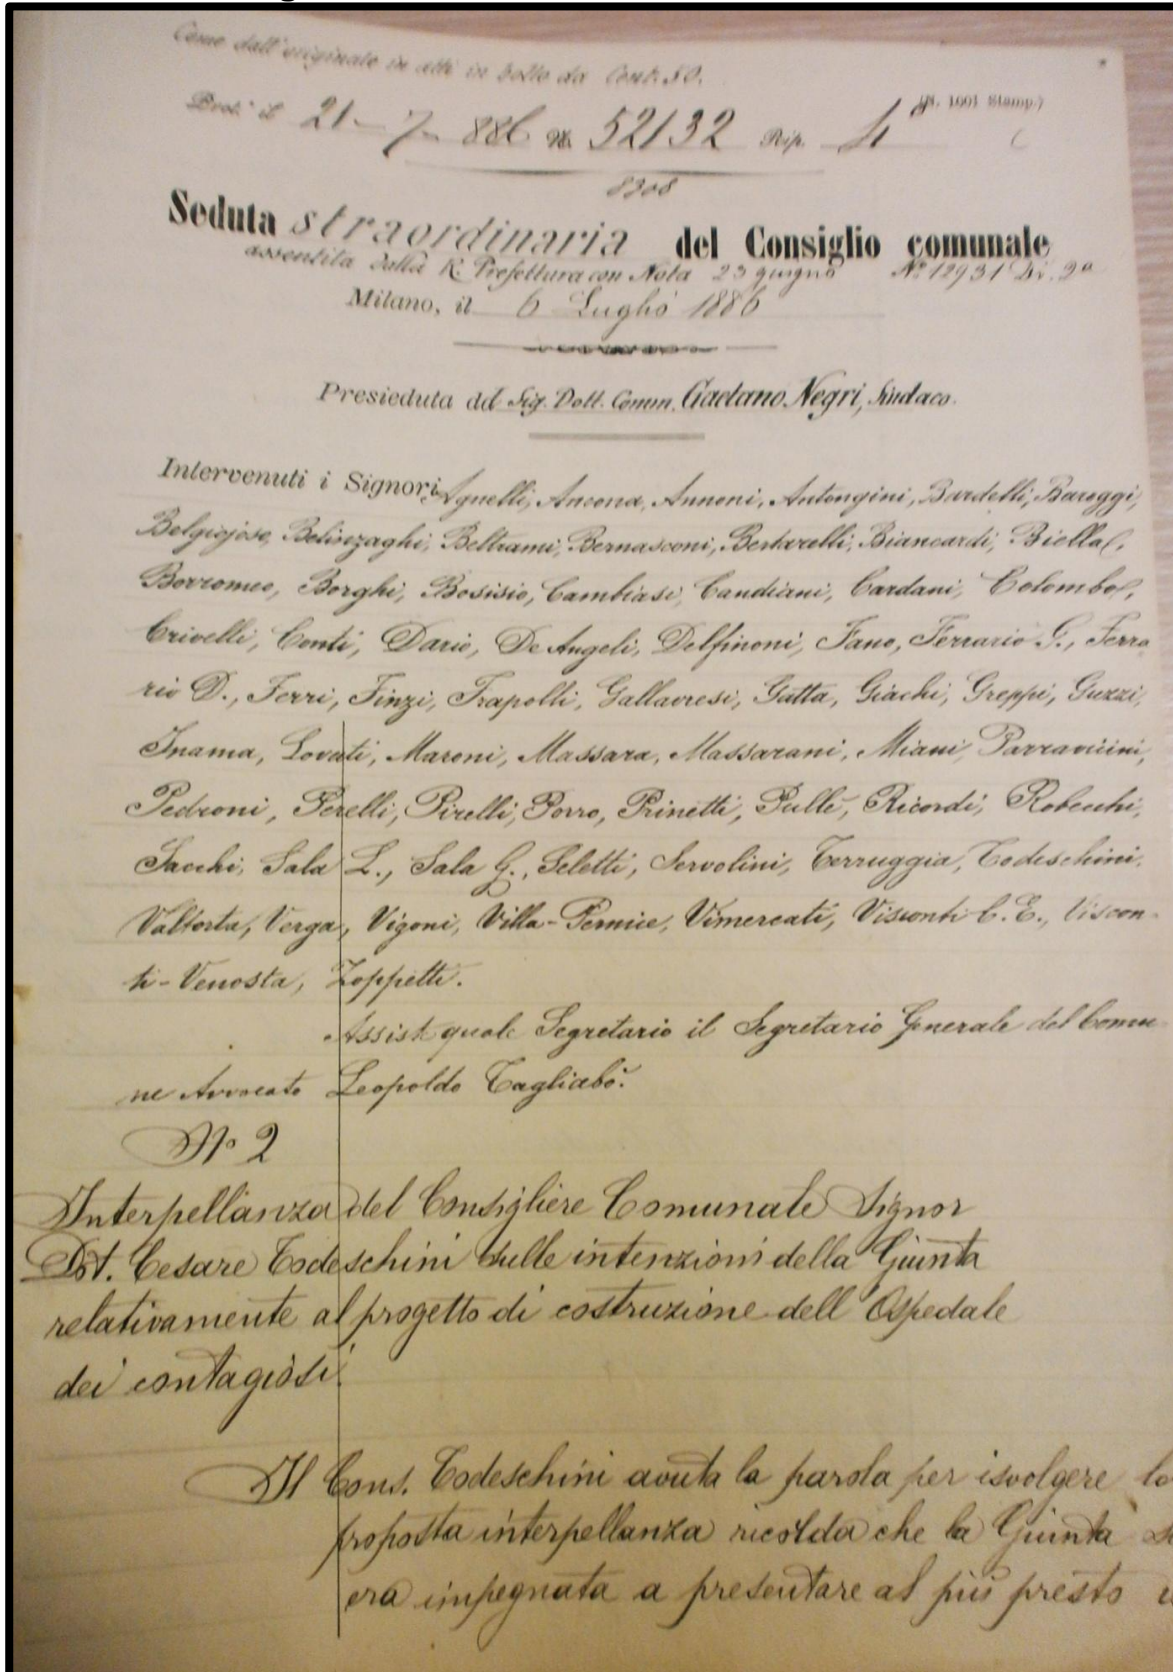 Come dall'originale in atti in bollo da Cent. 50.
(N. 1601 Stamp.)
Prot. il 21-7-886 N. 52132 Rip. 4ª
8308
Seduta straordinaria del Consiglio comunale
assentita dalla R. Prefettura con Nota 23 giugno N. 12931 Di. 2ª
Milano, il 6 Luglio 1886
Presieduta dal Sig. Dott. Comm. Gaetano Negri, Sindaco.
Intervenuti i Signori Agnelli, Ancona, Annoni, Antongini, Bardelli, Baroggi,
Belgiojoso, Belinzaghi, Beltrami, Bernasconi, Bertarelli, Biancardi, Biella,
Borromeo, Borghi, Bosisio, Cambiasi, Candiani, Cardani, Colombo,
Crivelli, Conti, Dario, De Angeli, Delfinoni, Fano, Ferrario G., Ferra
rio D., Ferri, Finzi, Frapolli, Gallavresi, Gatta, Giachi, Greppi, Guzzi,
Inama, Lovati, Maroni, Massara, Massarani, Miani, Parravicini,
Pedroni, Perelli, Pirelli, Porro, Prinetti, Pullè, Ricordi, Robecchi,
Sacchi, Sala L., Sala G., Seletti, Servolini, Terruggia, Todeschini,
Valtorta, Verga, Vigoni, Villa-Pernice, Vimercati, Visconti C. E., Viscon-
ti-Venosta, Zoppetti.
Assiste quale Segretario il Segretario Generale del Comu
ne Avvocato Leopoldo Tagliabò.
Nº 2
Interpellanza del Consigliere Comunale Signor
Dot. Cesare Todeschini sulle intenzioni della Giunta
relativamente al progetto di costruzione dell'Ospedale
dei contagiosi.
Il Cons. Todeschini avuta la parola per isvolgere la
proposta interpellanza ricorda che la Giunta
era impegnata a presentare al più presto